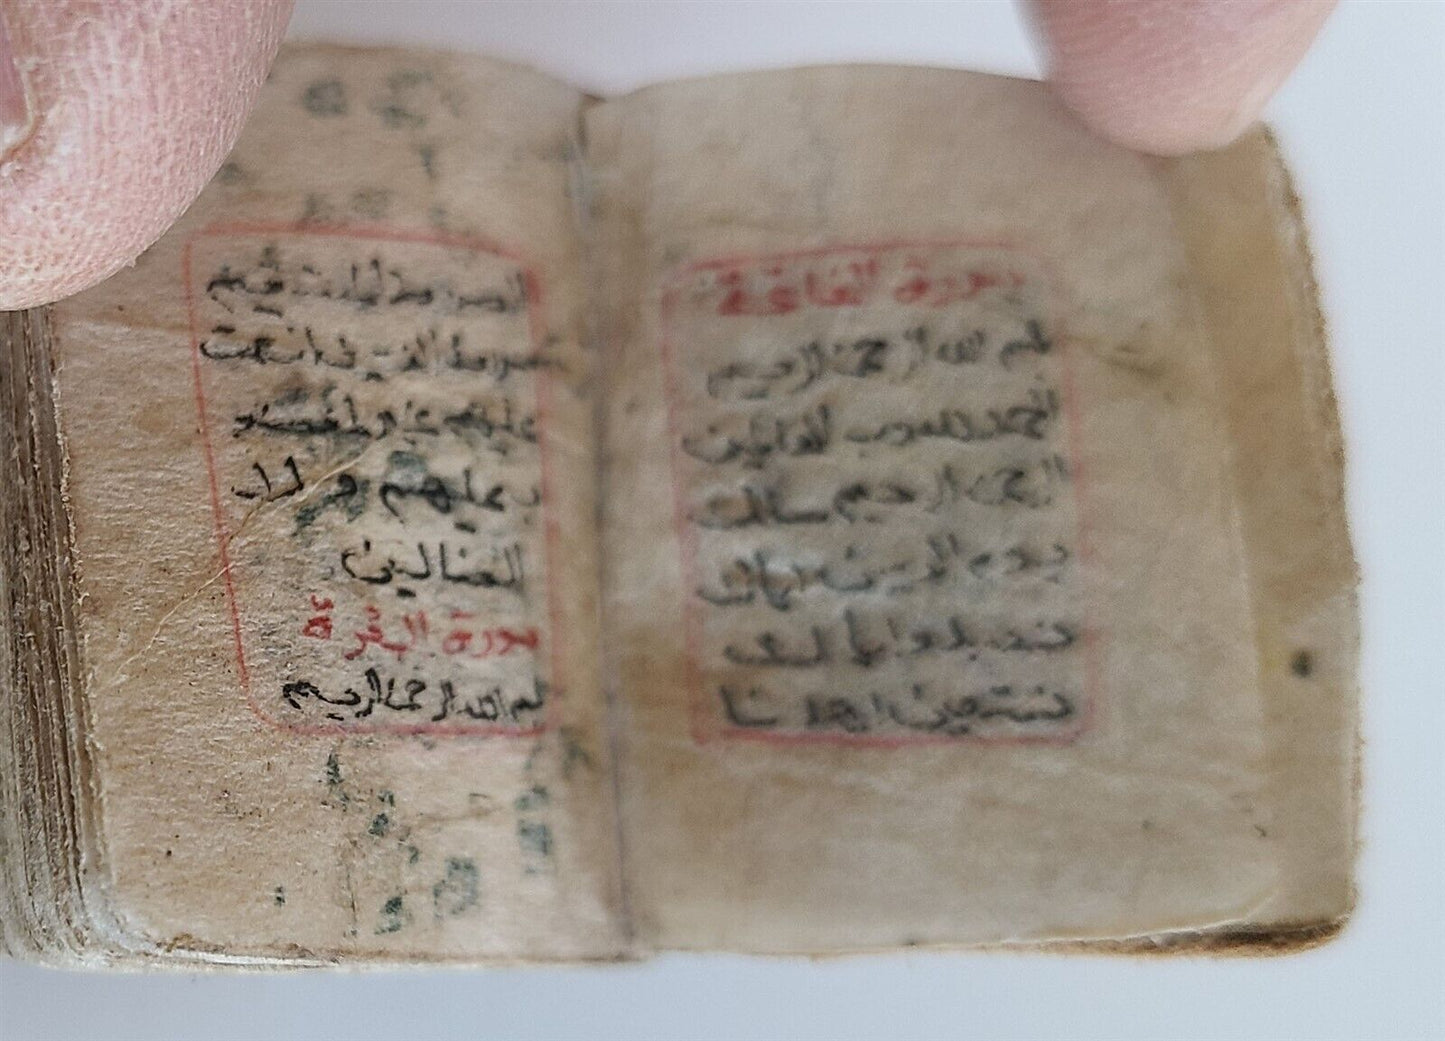 سورة الفاتحة
بسم الله الرحمن الرحيم
الحمد لله رب العالمين
الرحمن الرحيم مالك
يوم الدين اياك
نعبد واياك
نستعين اهدنا
الصراط المستقيم
صراط الذين انعمت
عليهم غير المغضو
ب عليهم ولا
الضالين
سورة البقرة
بسم الله الرحمن الرحيم